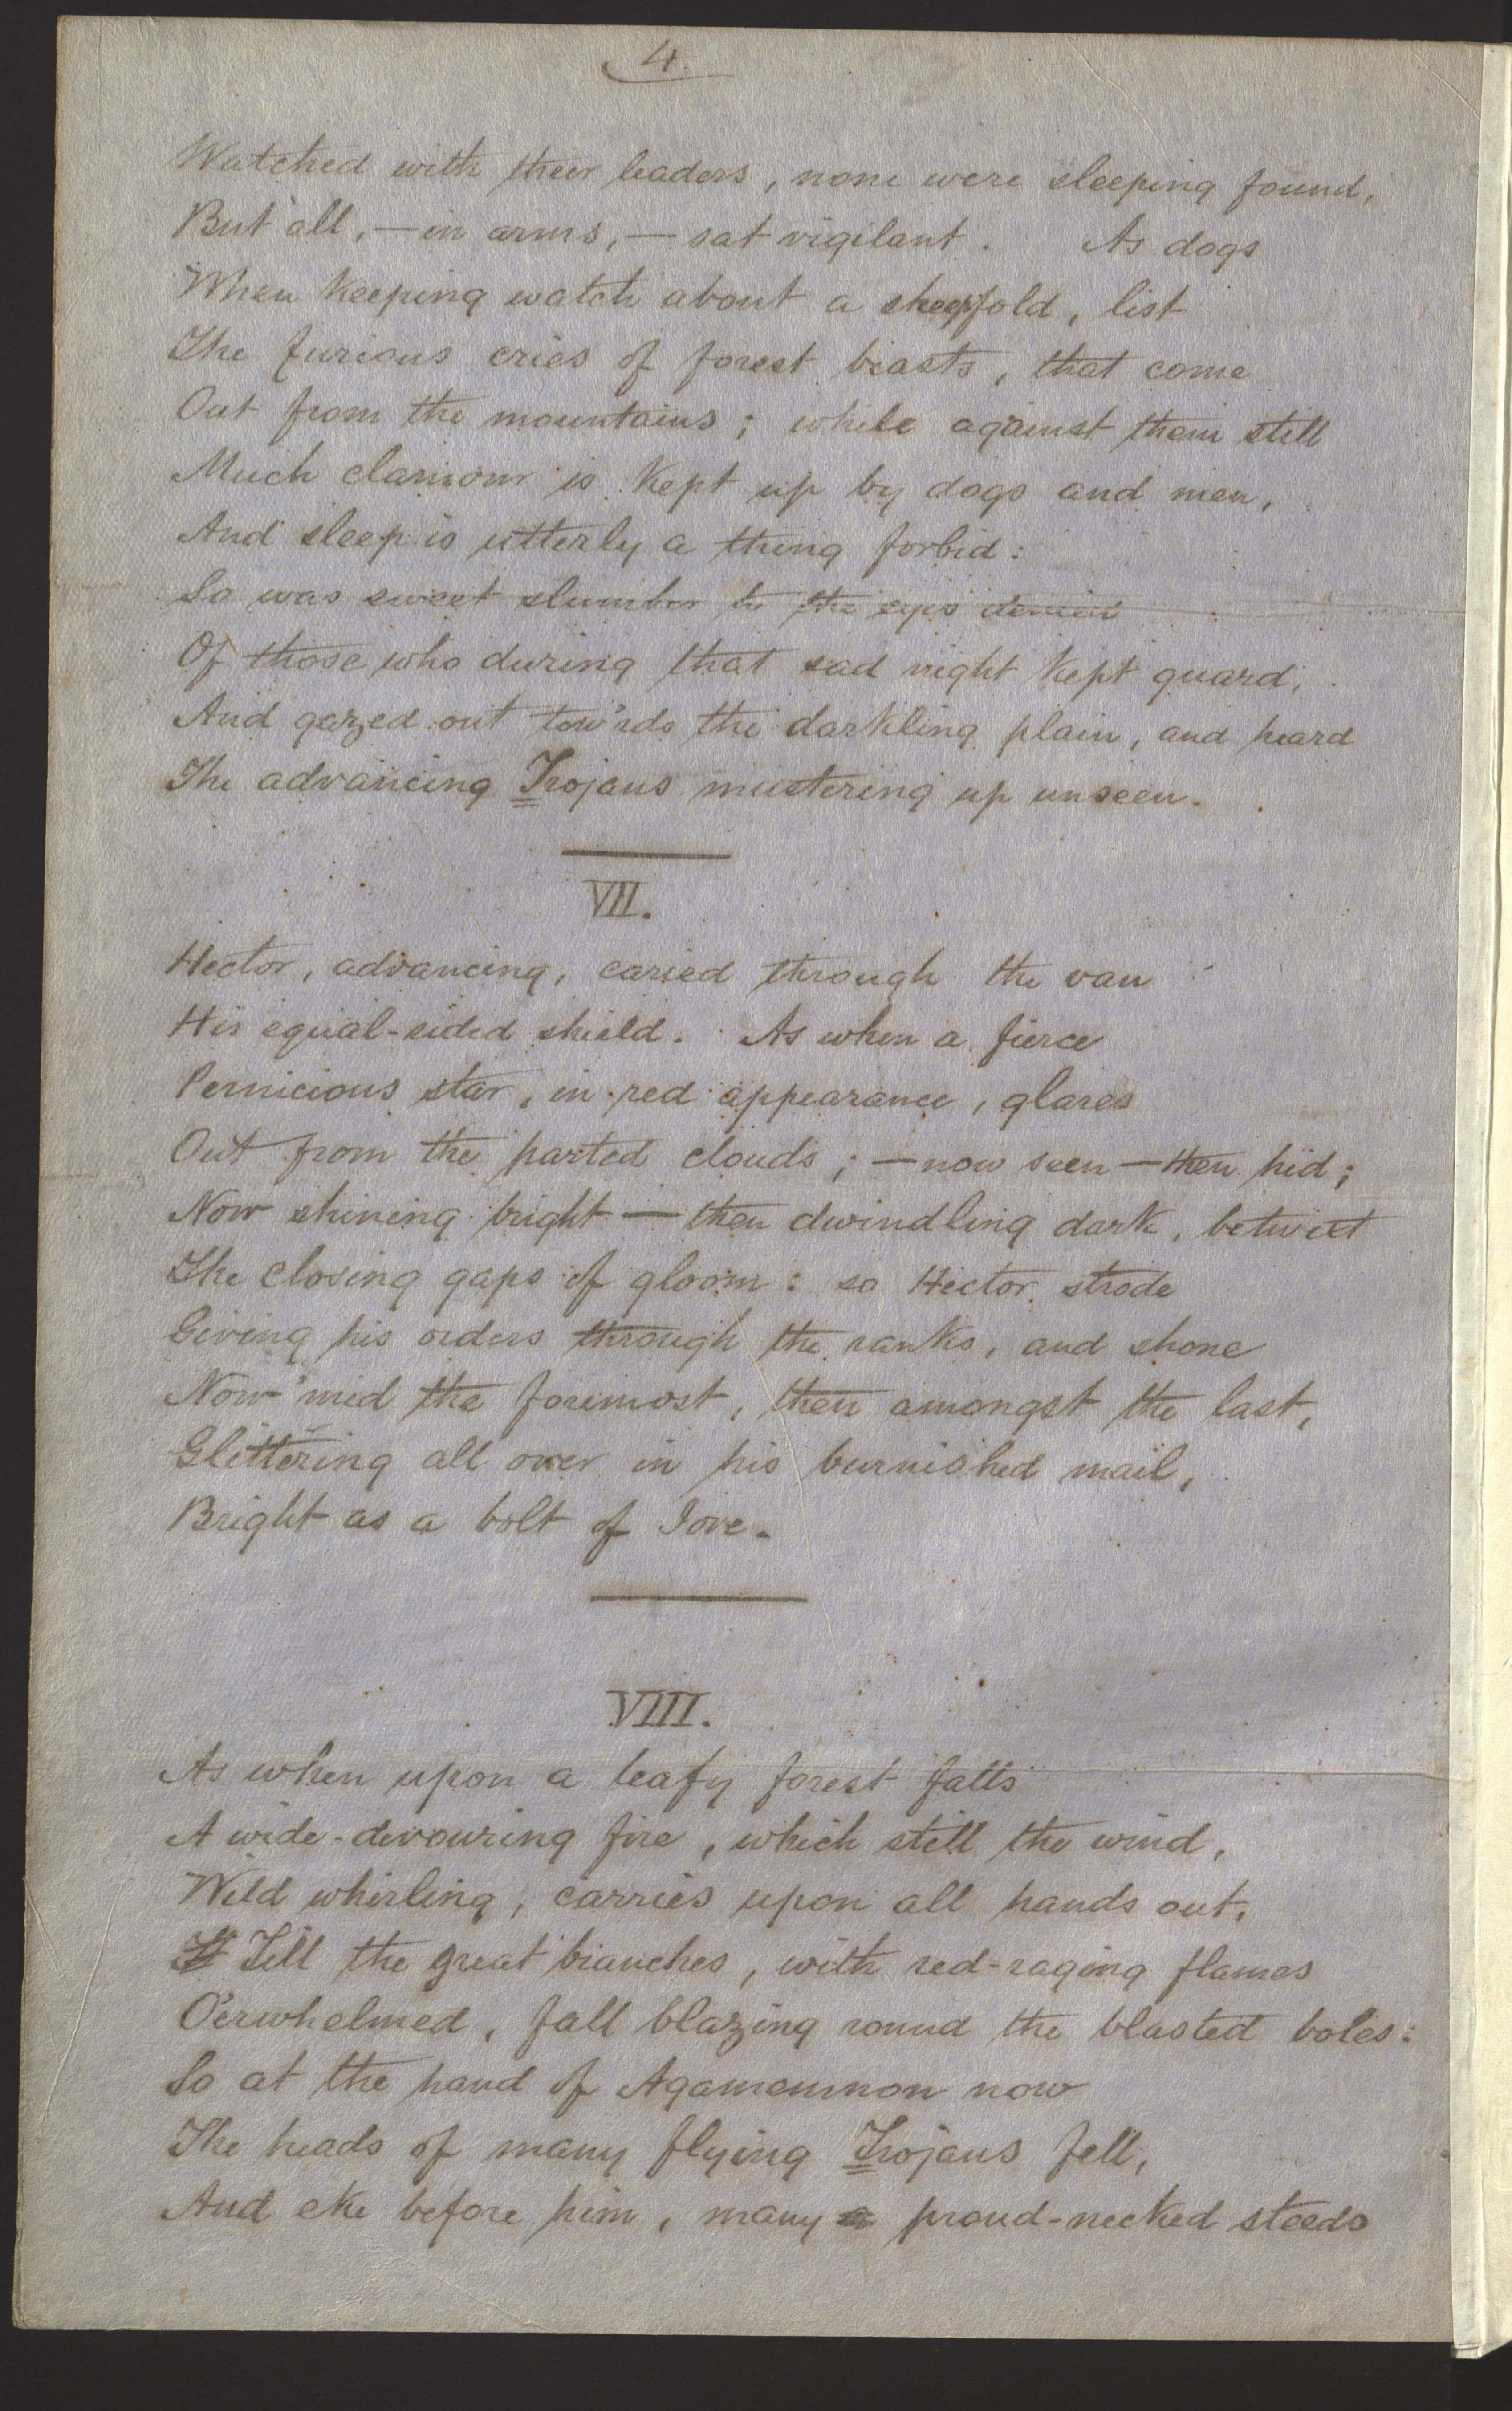 4.
Watched with their leaders, none were sleeping found,
But all, — in arms, — sat vigilant. As dogs
When keeping watch about a sheepfold, list
The furious cries of forest beasts, that come
Out from the mountains; while against them still
Much clamour is kept up by dogs and men,
And sleep is utterly a thing forbid:
So was sweet slumber to the eyes denied
Of those who during that sad night kept guard,
And gazed out tow'rds the darkling plain, and heard
The advancing Trojans mustering up unseen.
VII.
Hector, advancing, caried through the van
His equal-sided shield. As when a fierce
Pernicious star, in red appearance, glares
Out from the parted clouds; — now seen — then hid;
Now shining bright — then dwindling dark, betwixt
The closing gaps of gloom: so Hector strode
Giving his orders through the ranks, and shone
Now 'mid the foremost, then amongst the last,
Glittering all over in his burnished mail,
Bright as a bolt of Jove.
VIII.
As when upon a leafy forest falls
A wide-devouring fire, which still the wind,
Wild whirling, carries upon all hands out,
Till the great branches, with red-raging flames
O'erwhelmed, fall blazing round the blasted boles:
So at the hand of Agamemnon now
The heads of many flying Trojans fell,
And eke before him, many proud-necked steeds